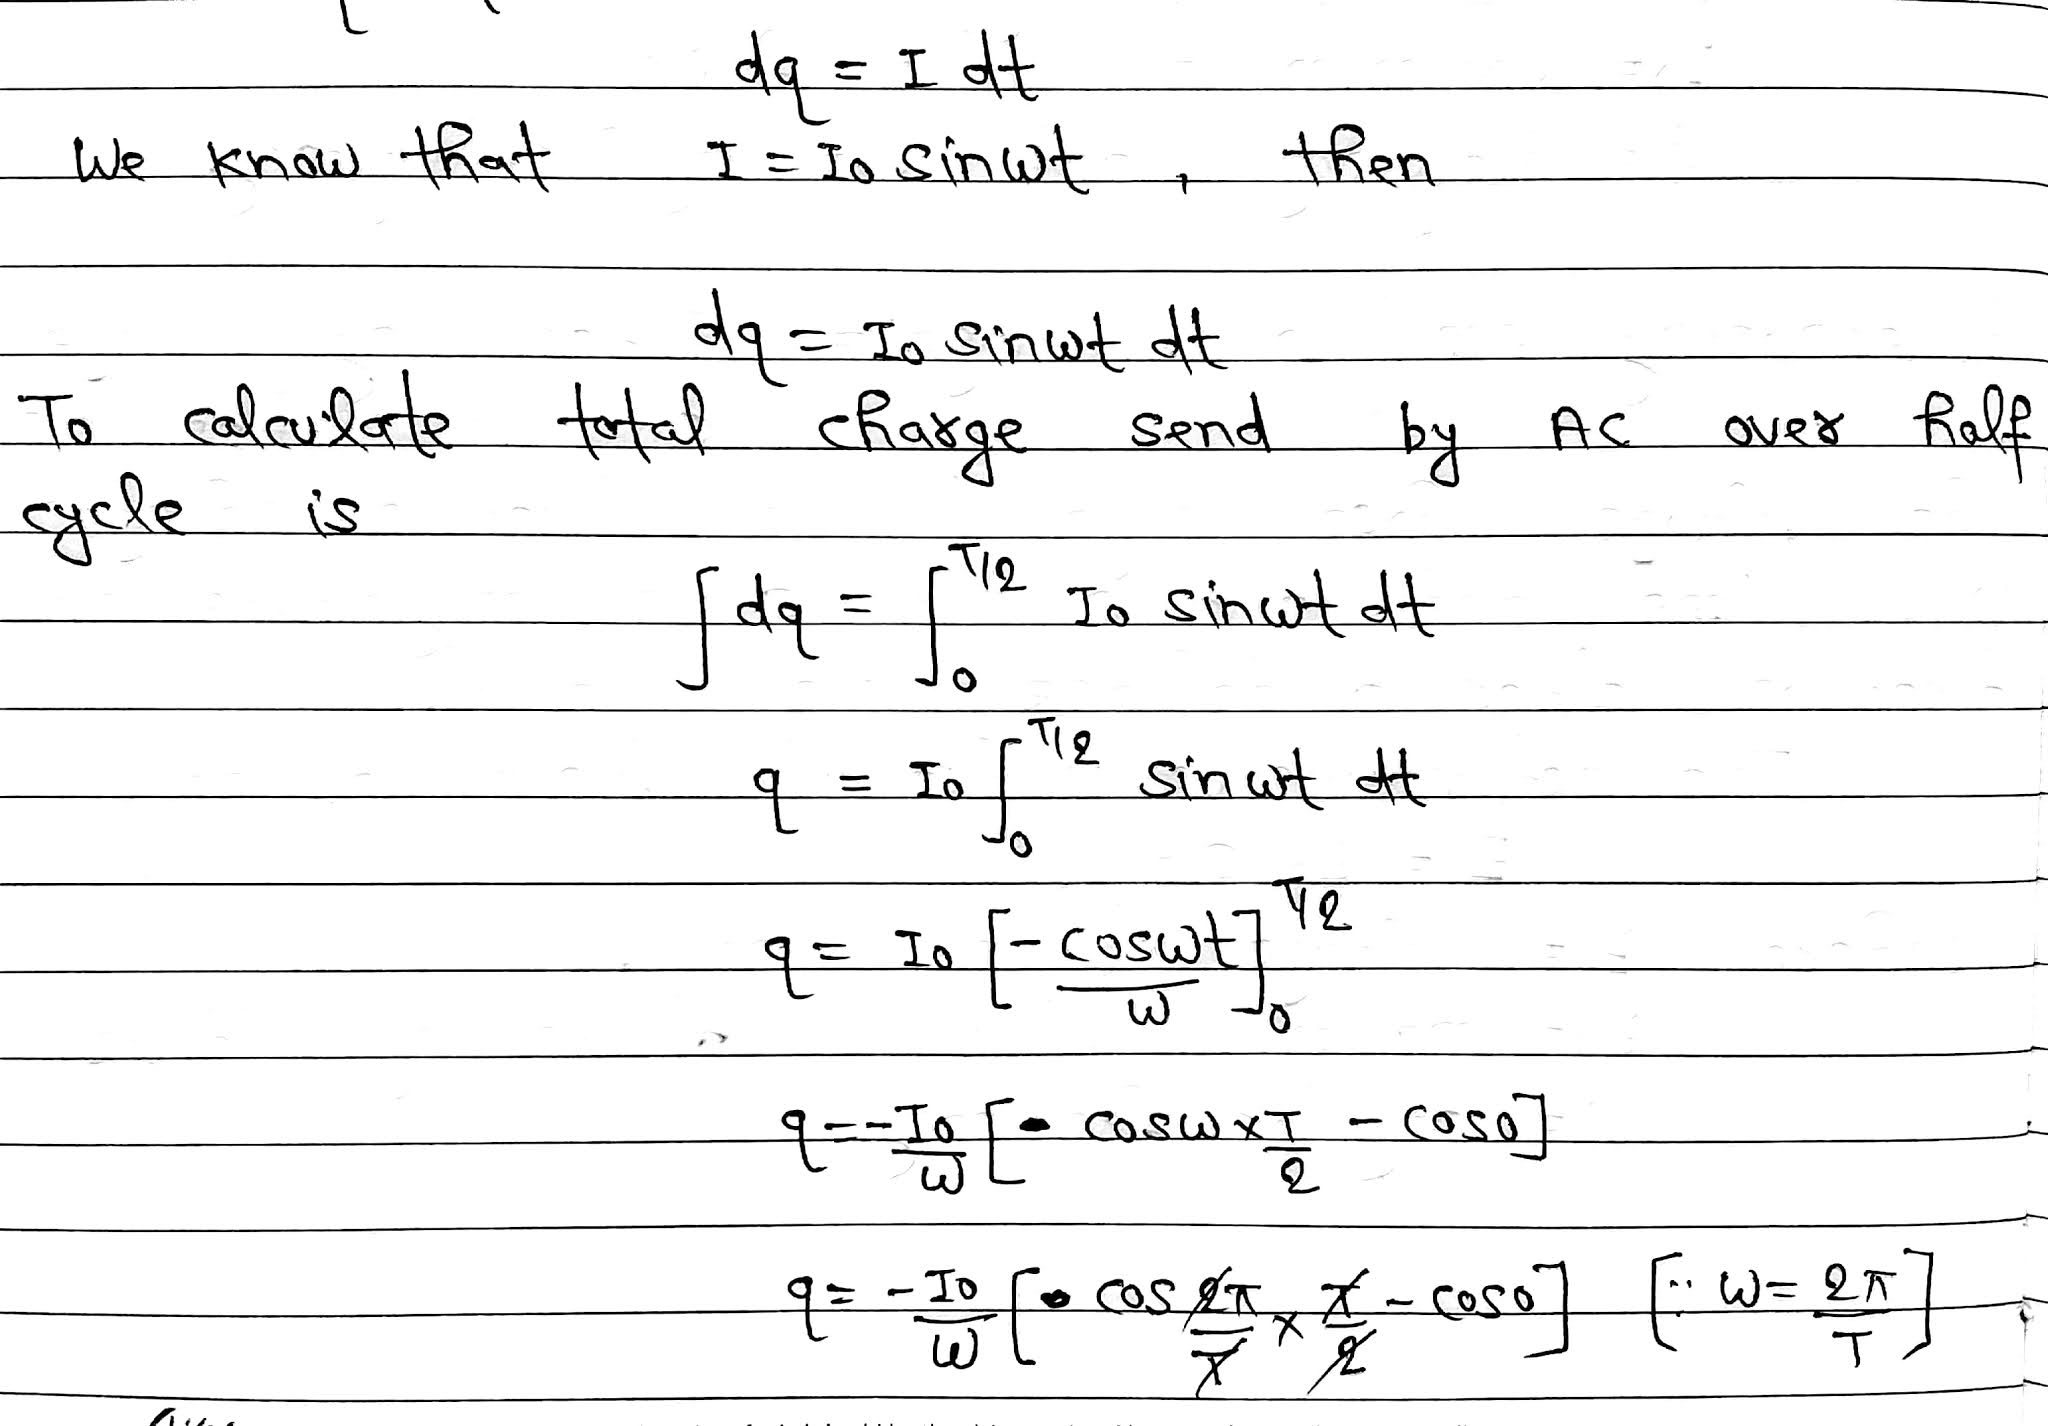 dq = I dt
We know that I = I₀ sinωt , then
dq = I₀ sinωt dt
To calculate total charge send by AC over half
cycle is
∫dq = ∫₀^{T/2} I₀ sinωt dt
q = I₀ ∫₀^{T/2} sinωt dt
q = I₀ [-cosωt/ω]₀^{T/2}
q = -I₀/ω [cosω×T/2 - cos0]
q = -I₀/ω [cos 2π/T × T/2 - cos0] [∵ ω = 2π/T]